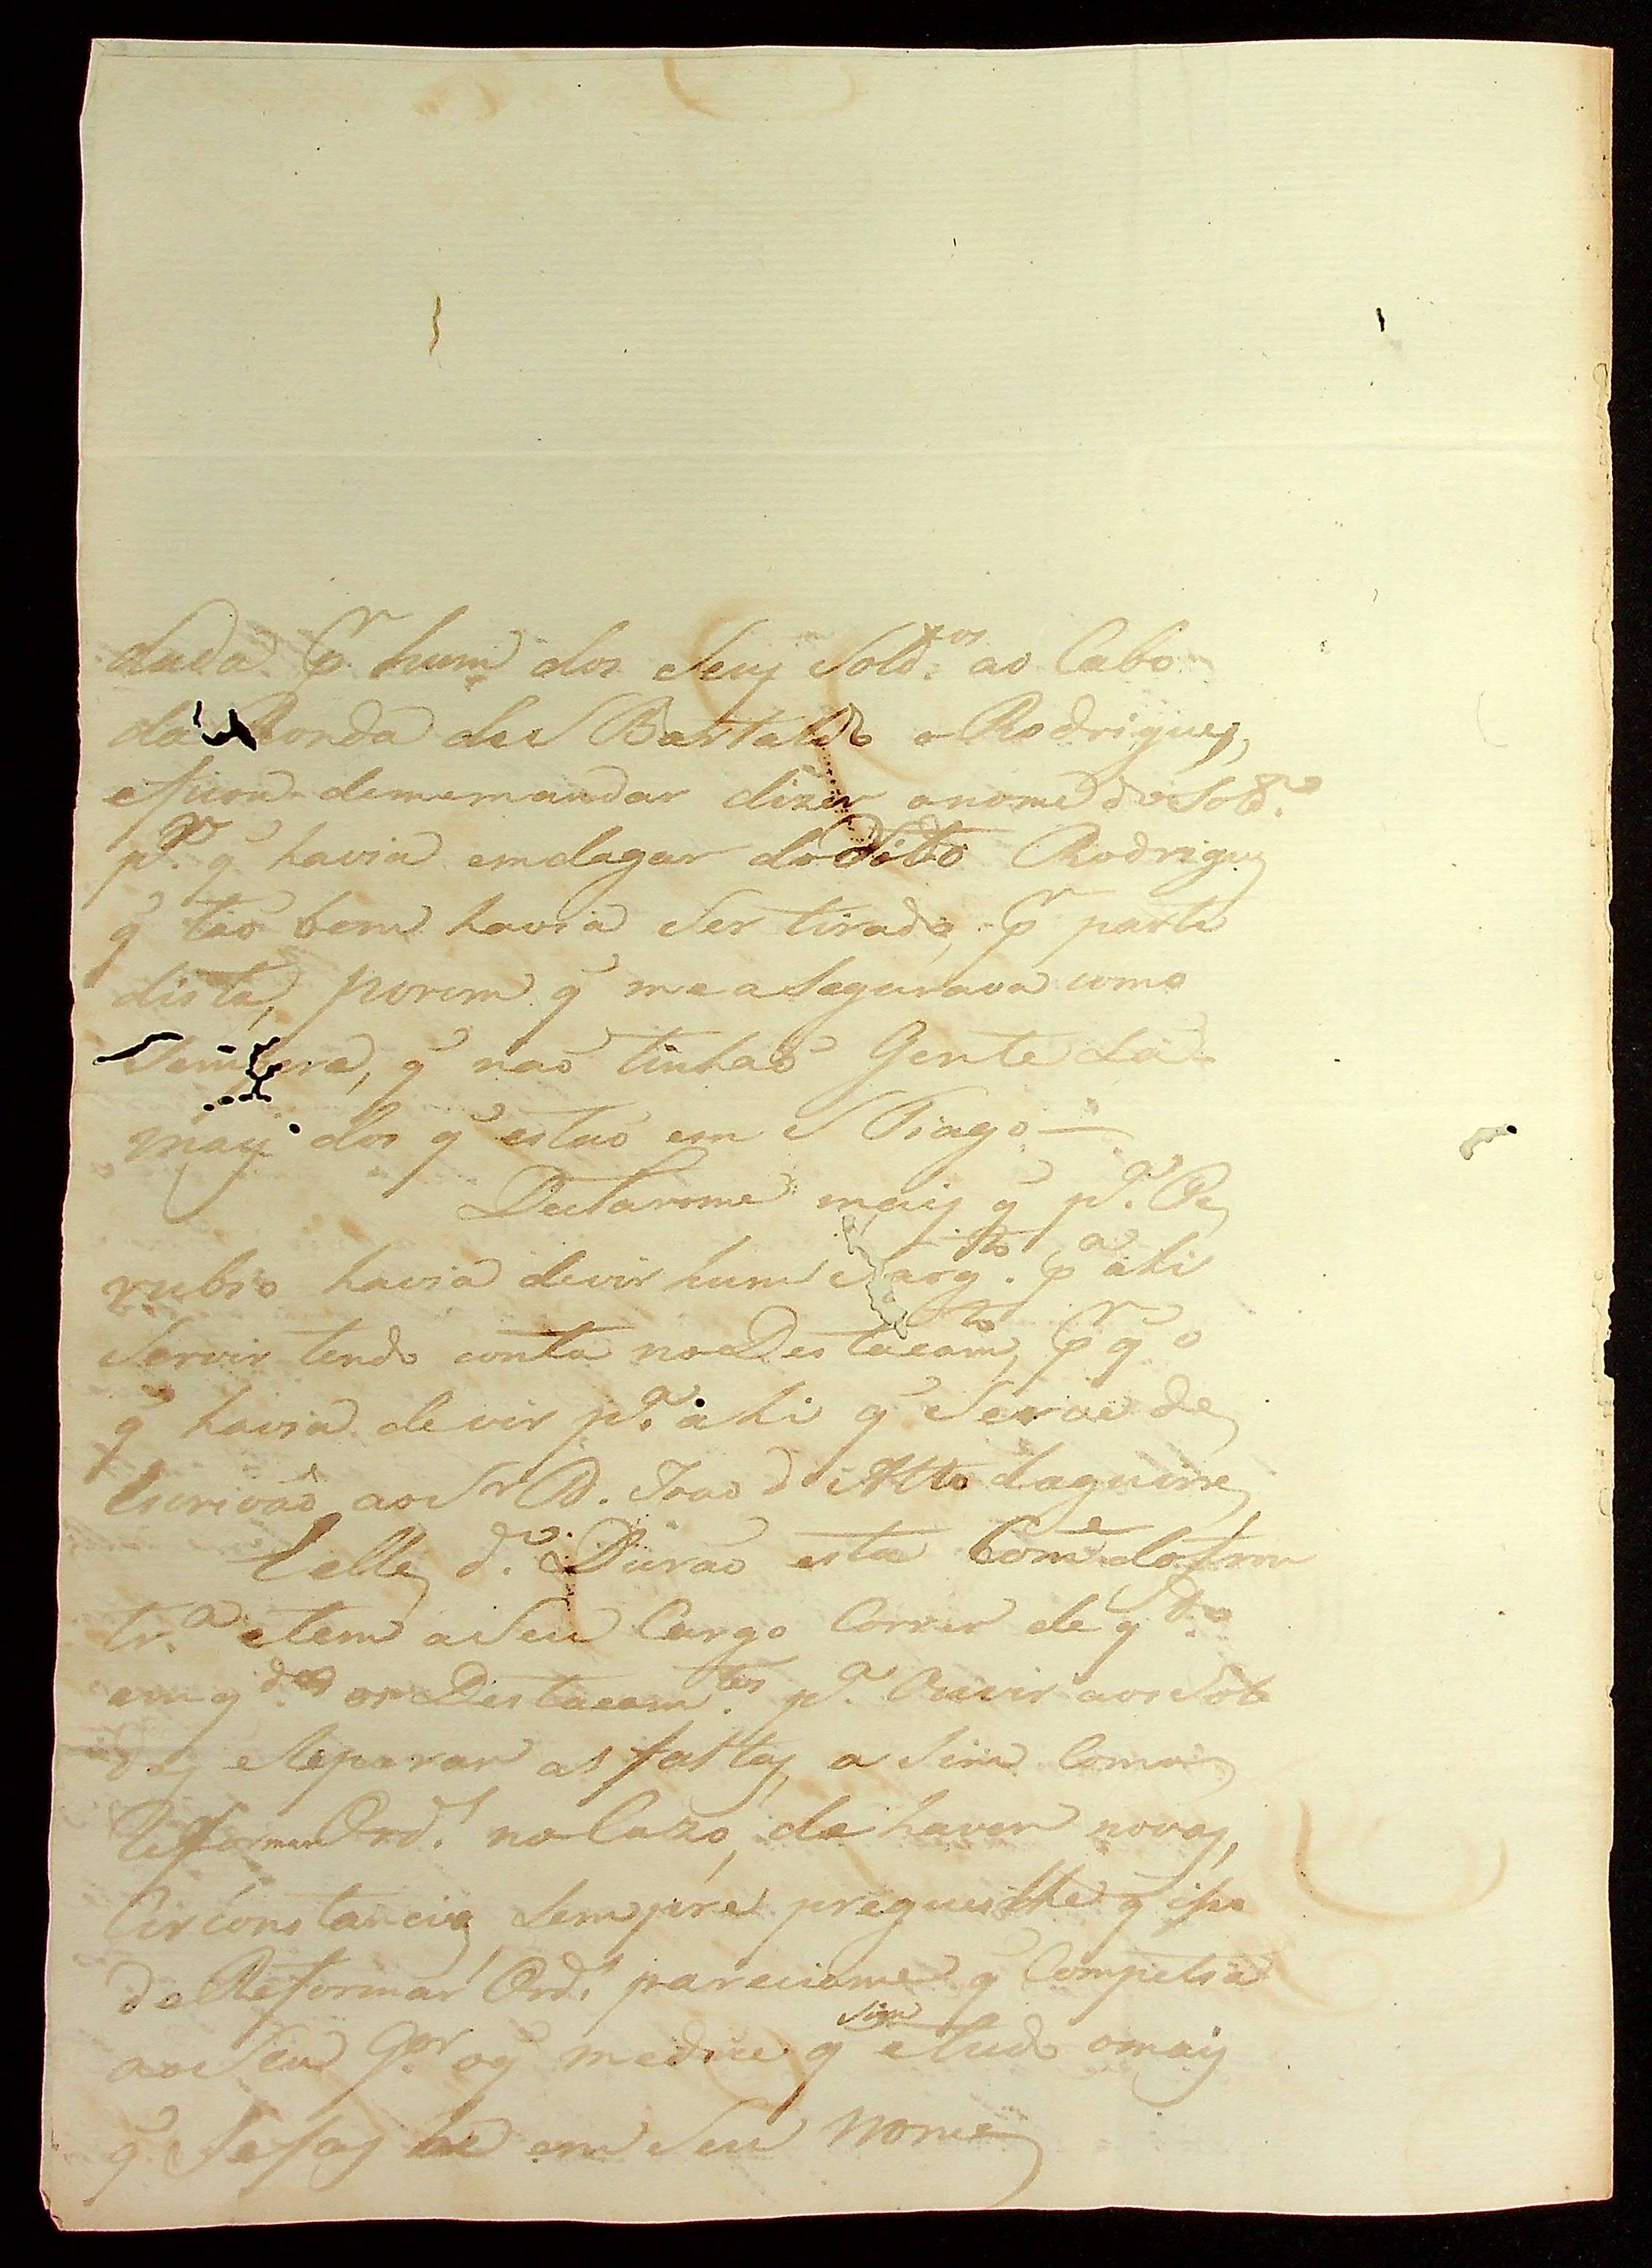 dada p.r hum dos Seuș Sold.os ao Cabo
da Ronda de Bastaldo o Rodrigueș,
eficou dememandar dizer onome do Sold.o
p.r q̃ havia emdagar do dito Rodrigueș
q̃ tão bem havia ser tirada, p.r parte
dista, porem q̃ me aSegurava como
Sempre, q̃ naõ tinhaõ Gente Lá
maiș dos q̃ estaõ em STiago —
Declarome maiș q̃ p.a
rubio havia devir hum Sarg.to p.a ahi
Servir tendo conta no Destacam.to, p.r q̃ o
q̃ havia devir p.a ahi q̃ Serve de
Escrivaõ ao S.r D. Joaõ d Alto Laguirre
Eelle d.o Duraõ esta Com.e da fron
tr.a etem aSeu Cargo Correr de q.do
em q.do os Destacam.tos p.a Ouvir aos Sol
dadoș eReparar as faltaș, aSim Como
Reformar Ord.s no Cazo, de haver novaș,
Circonstanciaș Sempre preguntelhe q̃ iso
de Reformar Ord.s pareciame q̃ Competia
aoSeu G.or oq̃ medice q̃ sim etudo omaiș
q̃ Sefaș he em Seu Nome